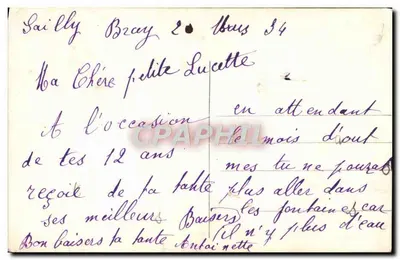 Sailly Bray 20 Mars 34
Ma Chère petite Lucette
A l'occasion
de tes 12 ans
reçoit de ta tante
ses meilleurs Baisers
Bon baisers ta tante Antoinette
en attendant
le mois d'out
mes tu ne pourat
plus aller dans
les fontaines car
il n'y plus d'eau
CPAPHIL